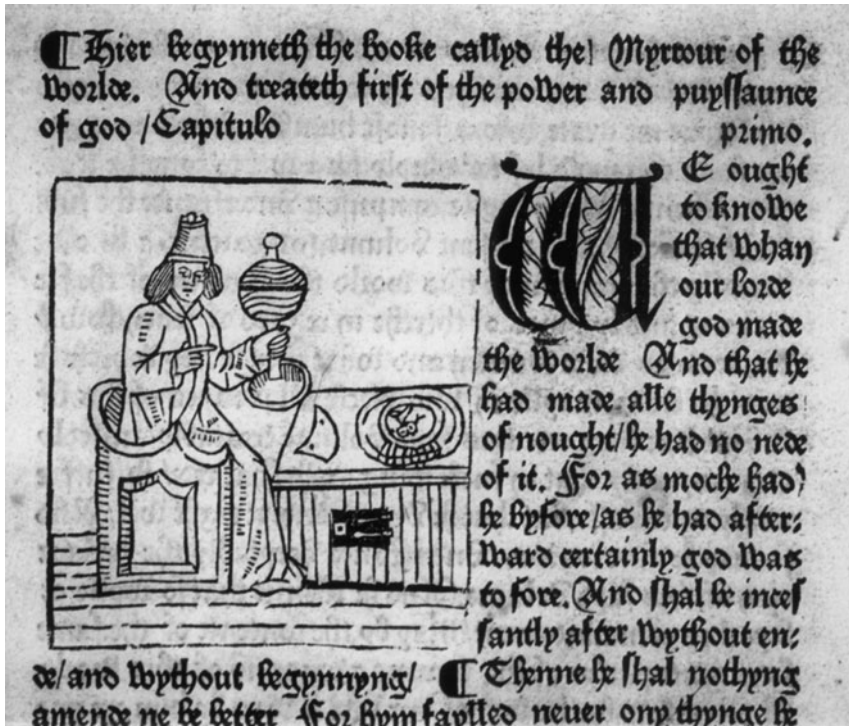 ¶ Hier begynneth the booke callyd the Myrrour of the
worlde. And treateth first of the power and puyssaunce
of god / Capitulo primo.
WE ought
to knowe
that whan
our lorde
god made
the worlde And that he
had made alle thynges
of nought/ he had no nede
of it. For as moche had
he byfore/as he had after:
ward certainly god was
to fore. And shal be inces
santly after wythout en:
de/ and wythout begynnyng/ ¶ Thenne he shal nothyng
amende ne be better For hym faylled neuer ony thynge he